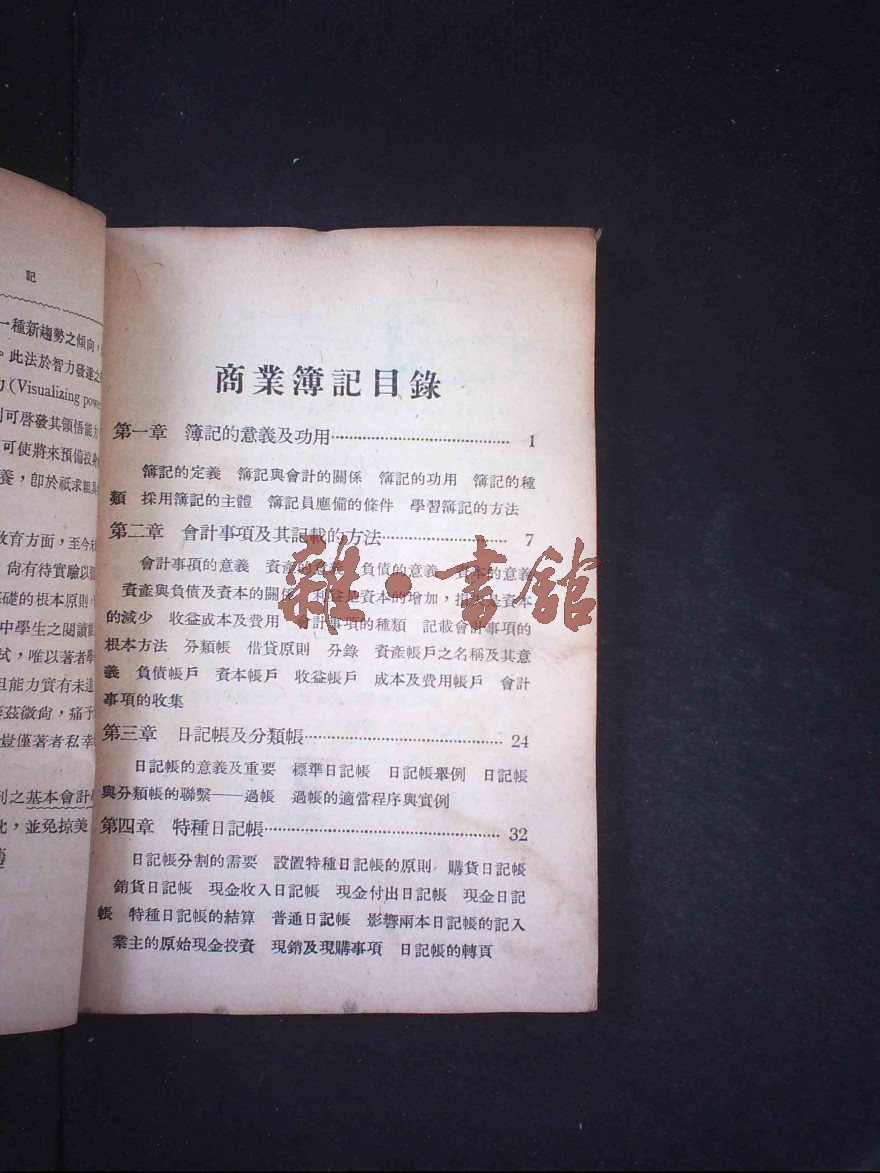 記
一種新趨勢之傾向，
。此法於智力發達之
(Visualizing powe
可啓發其領悟能力
可使將來預備投身
養，卽於祇求粗具
教育方面，至今
尚有待實驗以
礎的根本原則，
中學生之閱讀
試，唯以著者學
且能力實有未逮
茲微尙，痛予
豈僅著者私幸
刊之基本會計學
此，並免掠美
商業簿記目錄
第一章　簿記的意義及功用 1
簿記的定義　簿記與會計的關係　簿記的功用　簿記的種
類　採用簿記的主體　簿記員應備的條件　學習簿記的方法
第二章　會計事項及其記載的方法 7
會計事項的意義　資產的意義　負債的意義　資本的意義
資產與負債及資本的關係　利益是資本的增加，損失是資本
的減少　收益成本及費用　會計事項的種類　記載會計事項的
根本方法　分類帳　借貸原則　分錄　資產帳戶之名稱及其意
義　負債帳戶　資本帳戶　收益帳戶　成本及費用帳戶　會計
事項的收集
第三章　日記帳及分類帳 24
日記帳的意義及重要　標準日記帳　日記帳舉例　日記帳
與分類帳的聯繫——過帳　過帳的適當程序與實例
第四章　特種日記帳 32
日記帳分割的需要　設置特種日記帳的原則　購貨日記帳
銷貨日記帳　現金收入日記帳　現金付出日記帳　現金日記
帳　特種日記帳的結算　普通日記帳　影響兩本日記帳的記入
業主的原始現金投資　現銷及現購事項　日記帳的轉頁
雜·書館